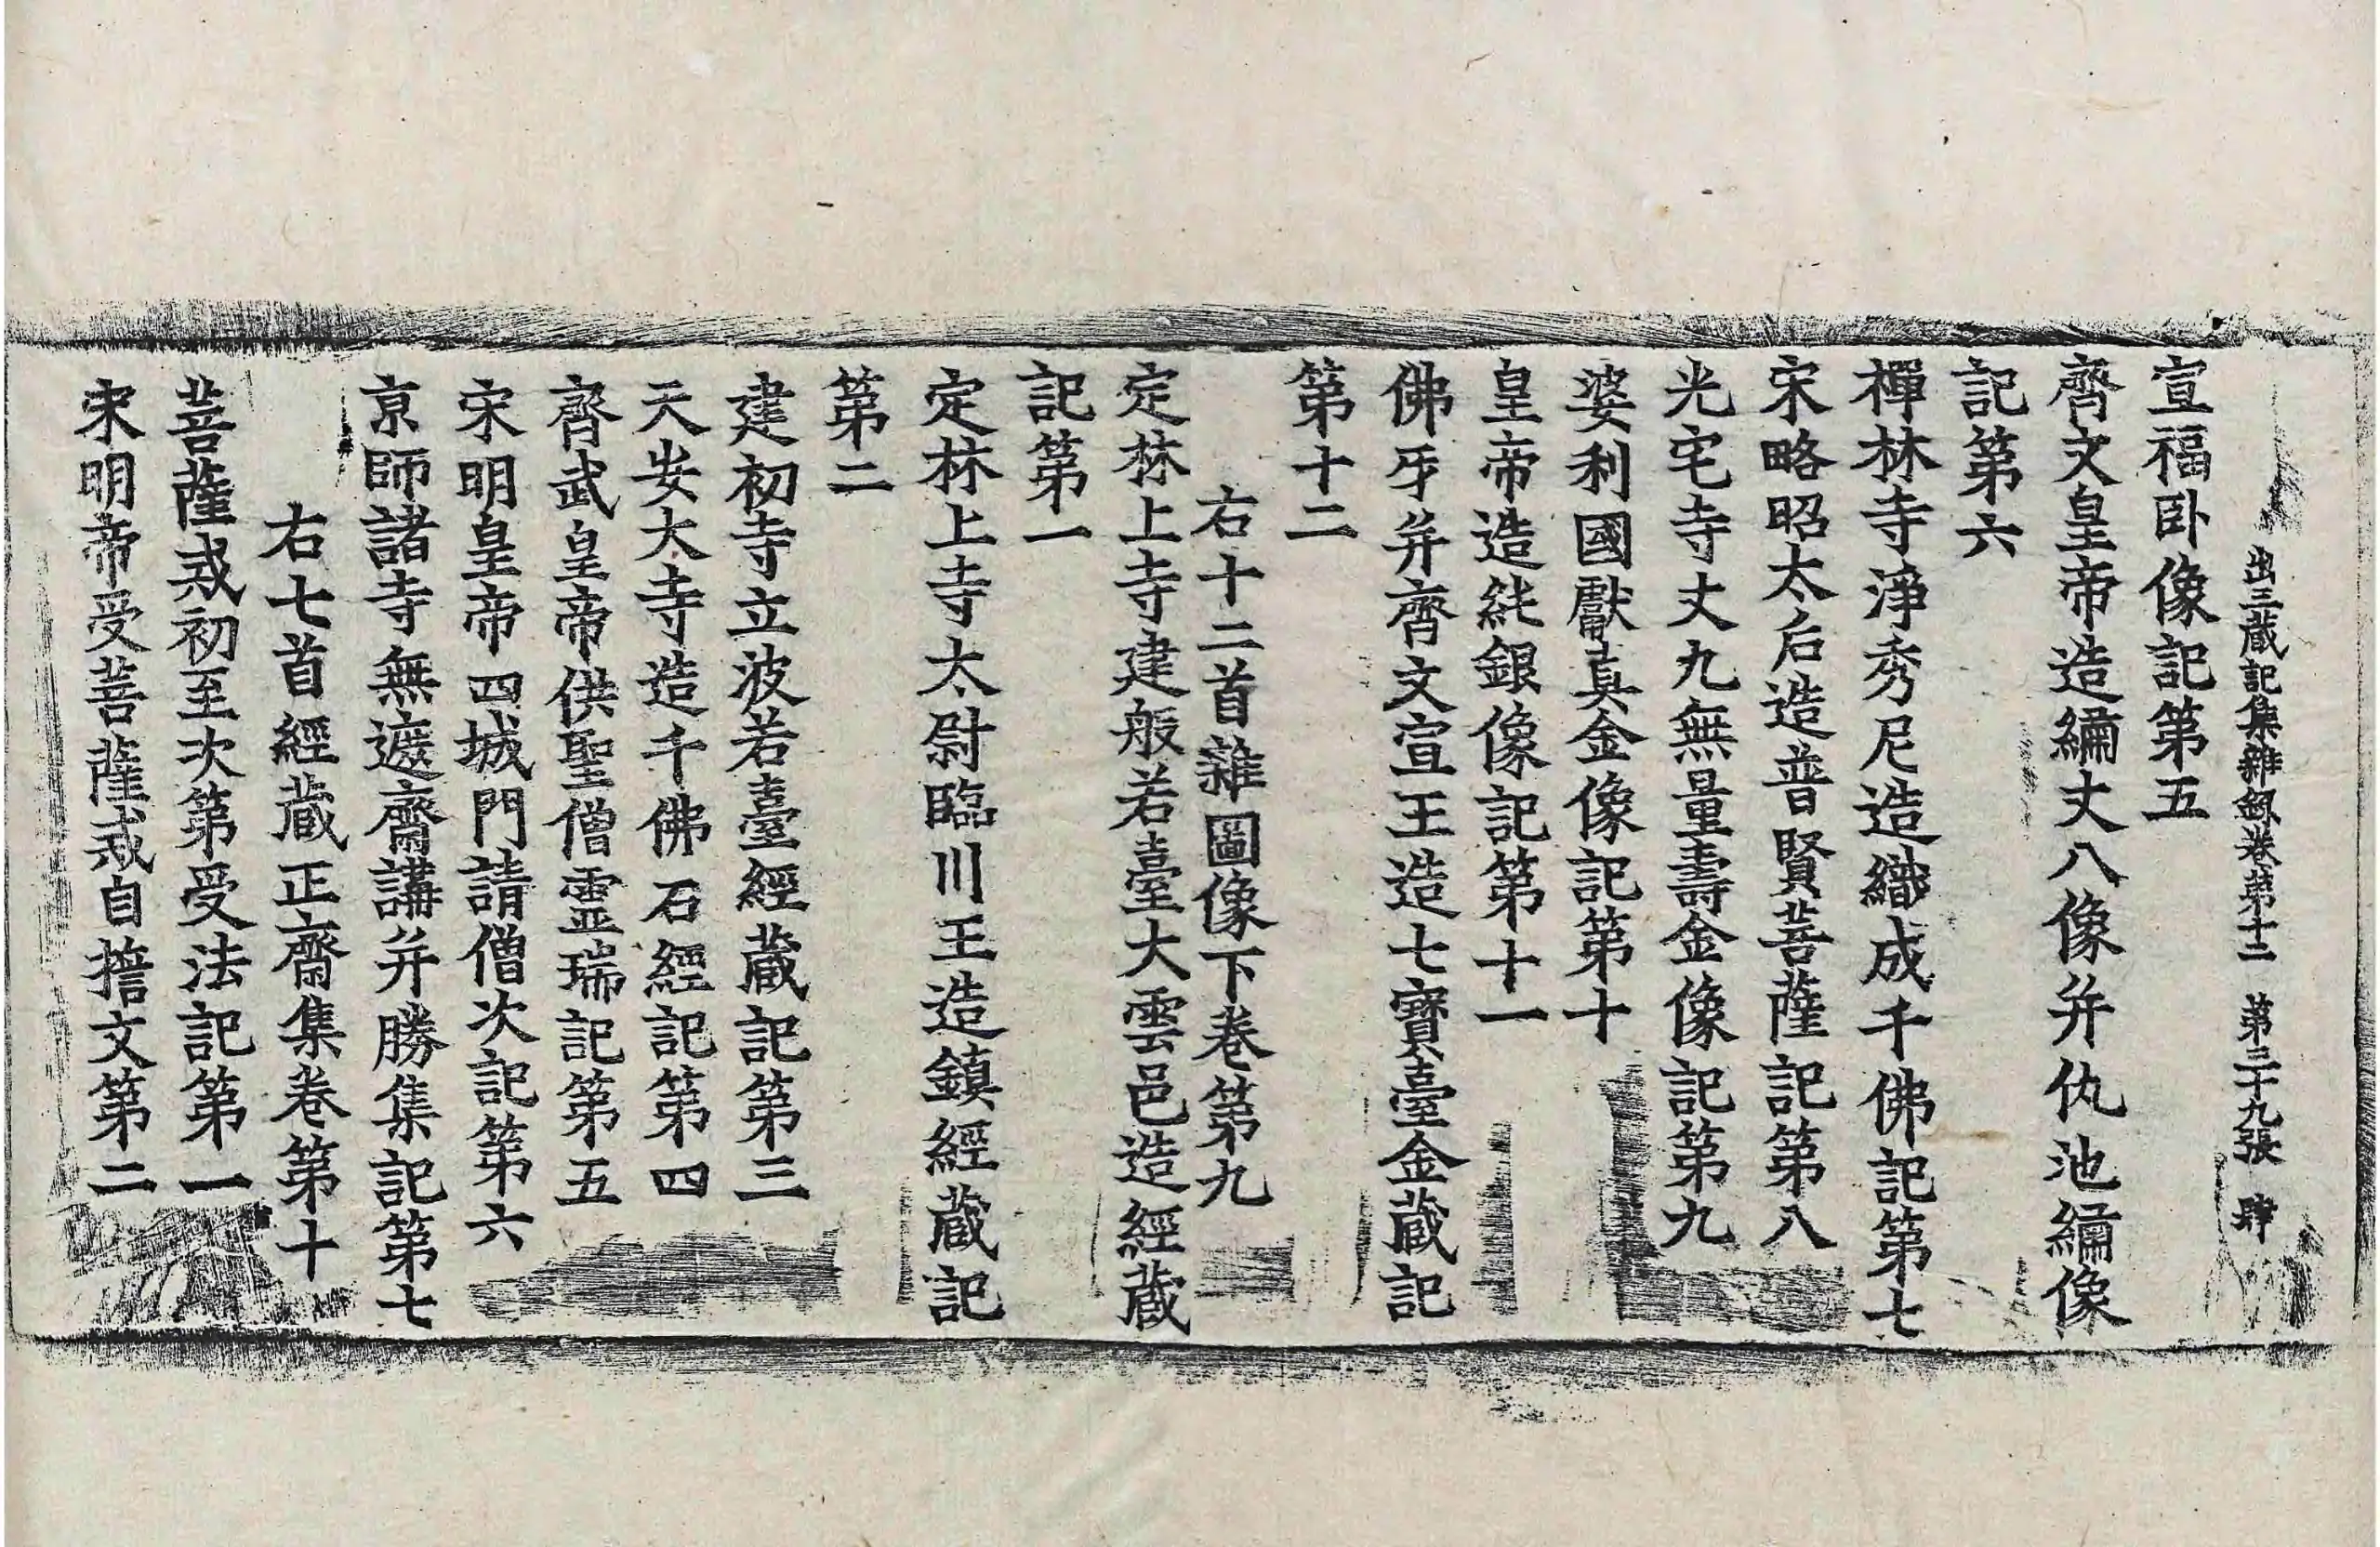 出三藏記集雜錄卷第十二 第三十九張 肆
宣福卧像記第五
齊文皇帝造繡丈八像并仇池繡像
記第六
禪林寺淨秀尼造織成千佛記第七
宋略昭太后造普賢菩薩記第八
光宅寺丈九無量壽金像記第九
婆利國獻真金像記第十
皇帝造純銀像記第十一
佛牙并齊文宣王造七寶臺金藏記
第十二
右十二首雜圖像下卷第九
定林上寺建般若臺大雲邑造經藏
記第一
定林上寺太尉臨川王造鎮經藏記
第二
建初寺立波若臺經藏記第三
天安大寺造千佛石經記第四
齊武皇帝供聖僧靈瑞記第五
宋明皇帝四城門請僧次記第六
京師諸寺無遮齋講并勝集記第七
右七首經藏正齋集卷第十
菩薩戒初至次第受法記第一
宋明帝受菩薩戒自擔文第二